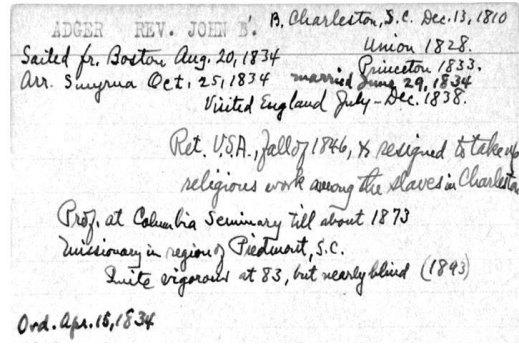 ADGER REV. JOHN B. B. Charleston, S.C. Dec. 13, 1810
Union 1828.
Sailed fr. Boston Aug. 20, 1834 Princeton 1833.
Arr. Smyrna Oct. 25, 1834 married June 29, 1834
Visited England July-Dec. 1838.
Ret. U.S.A., fall of 1846, & resigned to take up
religious work among the slaves in Charleston
Prof. at Columbia Seminary till about 1873
Missionary in region of Piedmont, S.C.
Quite vigorous at 83, but nearly blind (1893)
Ord. Apr. 15, 1834